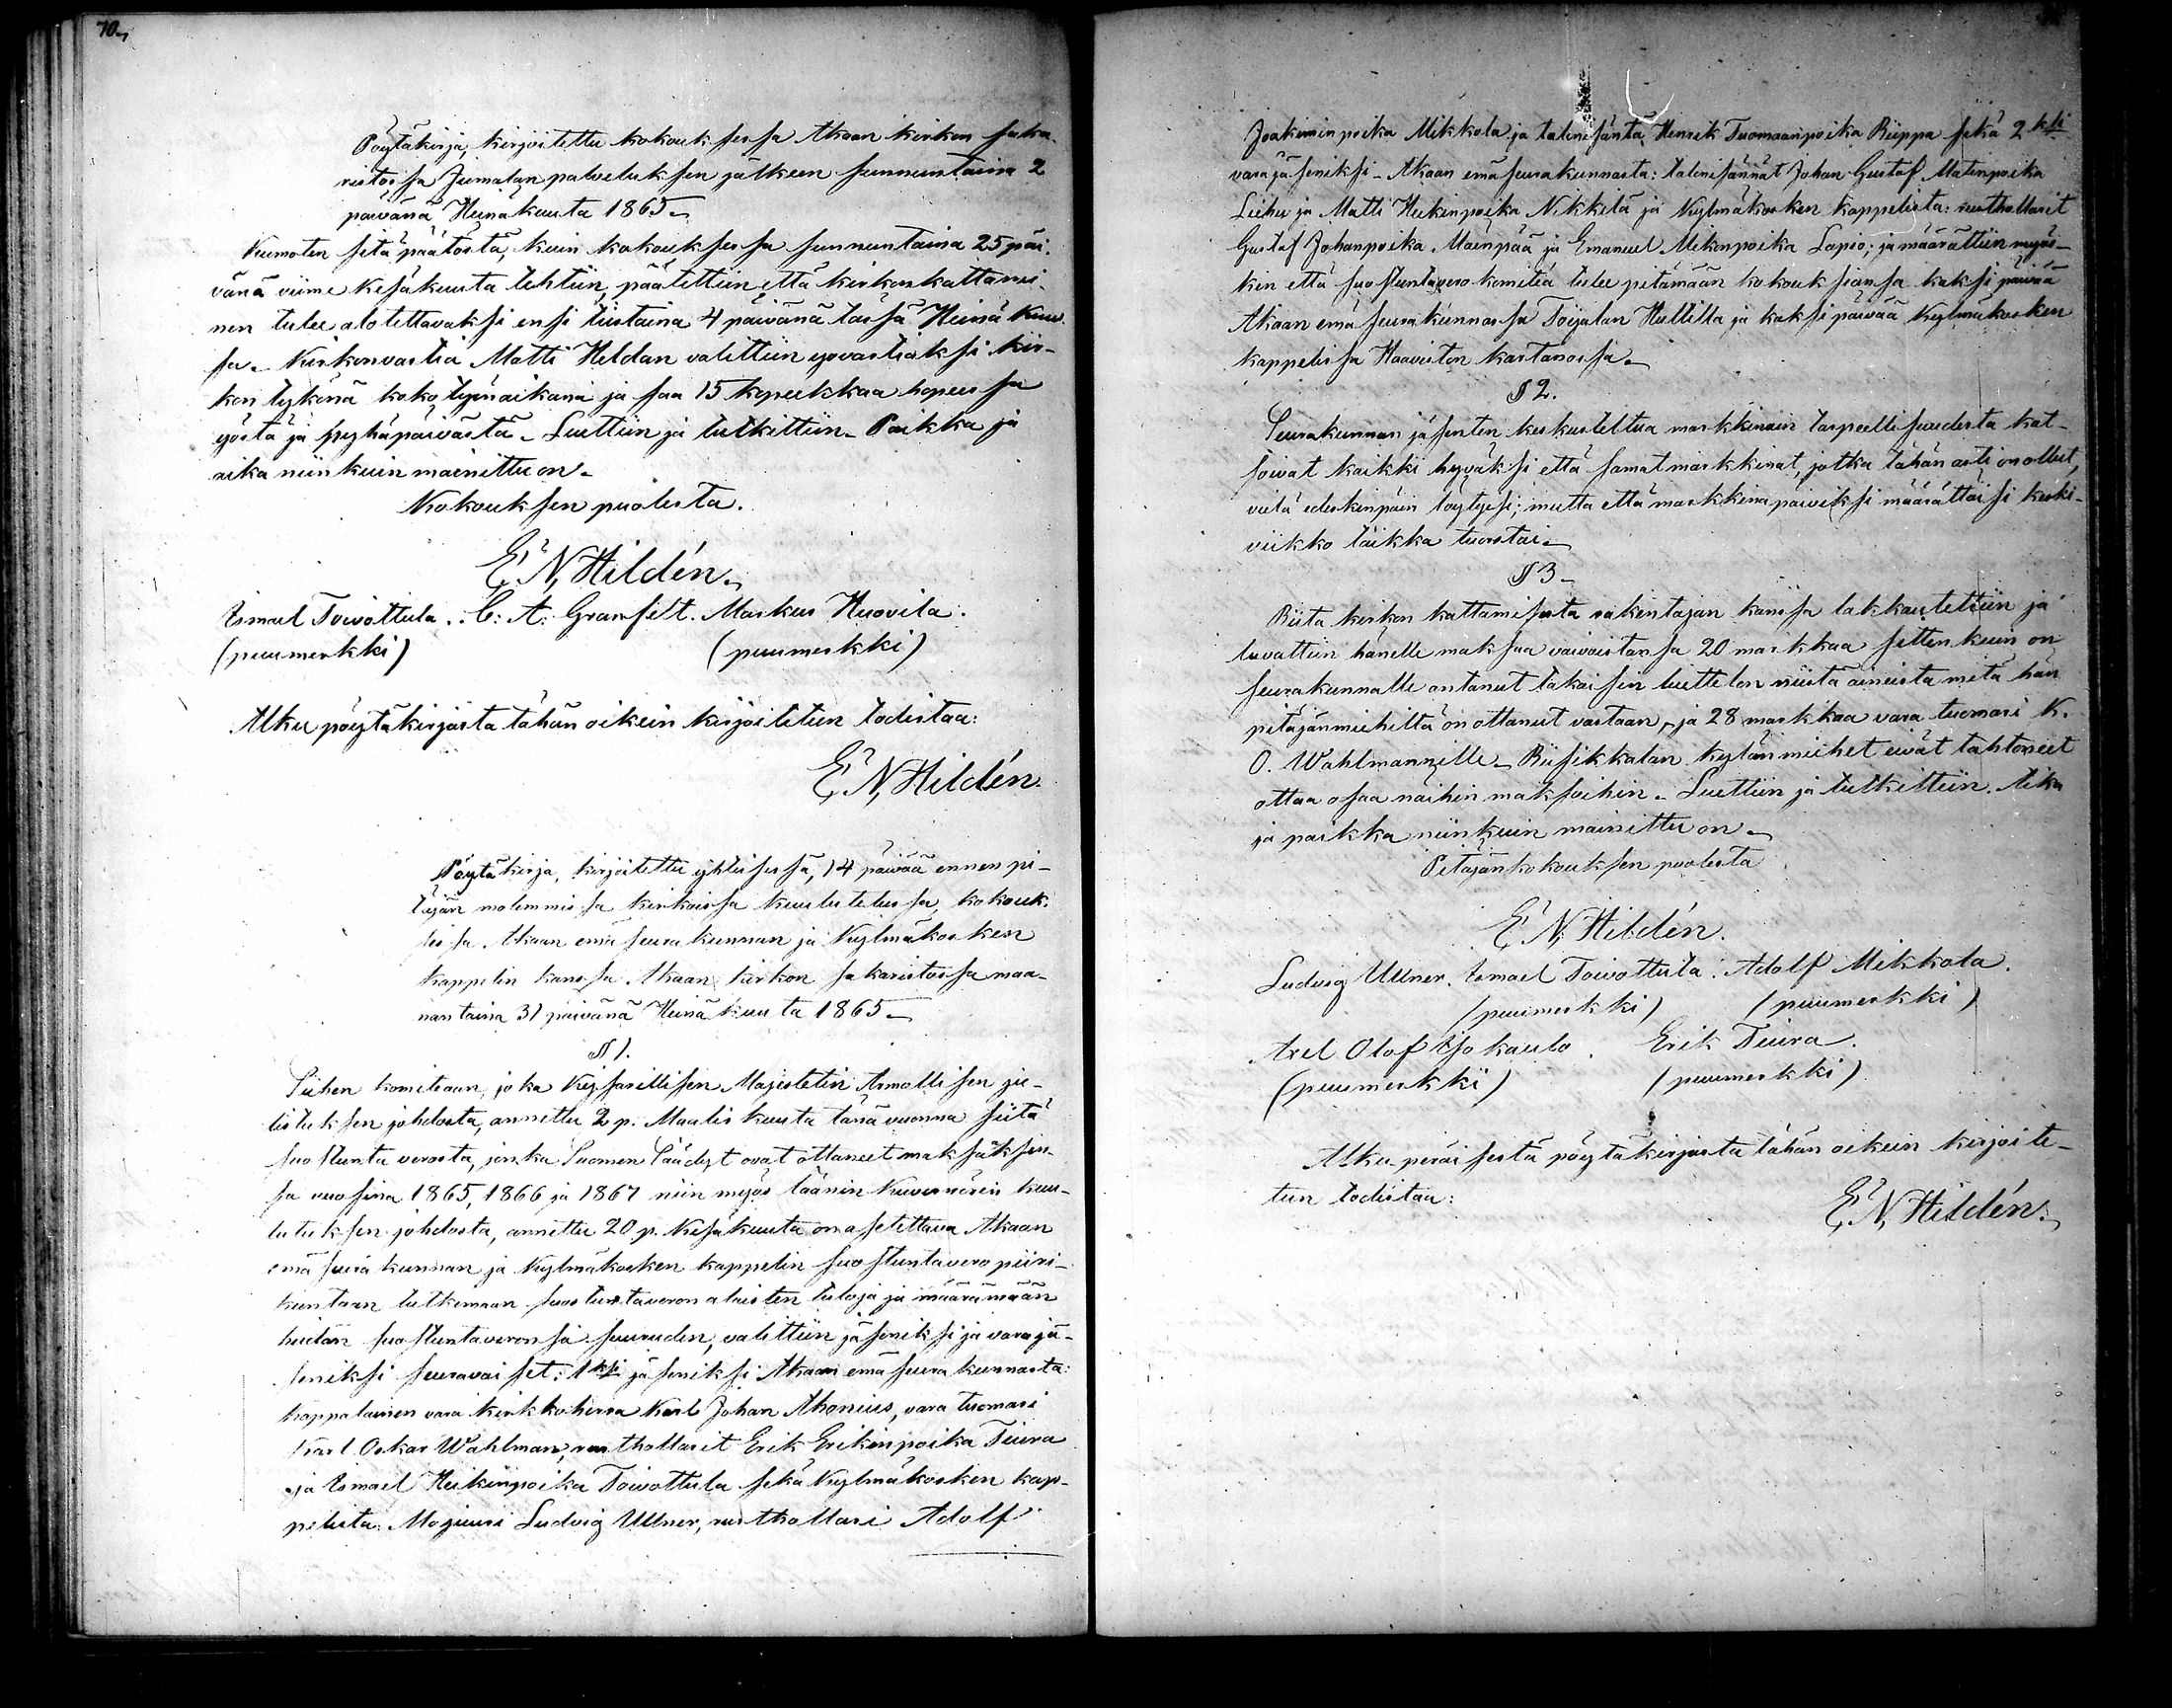 70.
Pöytäkirja, kirjoitettu kokouksessa Akaan kirkon saka-
ristossa Jumalan palveluksen jälkeen sunnuntaina 2
päivänä Heinäkuuta 1865.
Kumoten sitä päätöstä, kuin kokouksessa sunnuntaina 25 päi-
vänä viime Kesäkuuta tehtiin, päätettiin että kirkon kattami-
nen tulee alotettavaksi ensi tiistaina 4 päivänä tässä Heinä Kuu-
sa. Kirkonvartia Matti Heldan valittiin yövartiaksi kir-
kon tykönä koko työn aikana ja saa 15 kopeekkaa hopeessa
yöstä ja pyhäpäivästä. Luettiin ja tutkittiin. Paikka ja
aika niinkuin mainittu on.
Kokouksen puolesta.
E. N. Hildén.
Ismael Toivottula. C: A: Granfelt. Markus Huovila.
(puumerkki) (puumerkki)
Alku pöytäkirjasta tähän oikein kirjoitetun todistaa:
E. N. Hildén.
Pöytäkirja, kirjoitettu yhteisessä, 14 päivää ennen pi-
täjän molemmissa kirkoissa kuulutetussa, kokouk-
sessa Akaan emäseurakunnan ja Kylmäkosken
kappelin kanssa Akaan kirkon sakaristossa maa-
nantaina 31 päivänä Heinäkuuta 1865.
§ 1.
Siihen komiteaan, joka Keisarillisen Majestetin Armollisen ju-
listuksen johdosta, annettu 2 p. Maaliskuuta tänä vuonna siitä
suostuntaverosta, jonka Suomen Säädyt ovat ottaneet maksaaksen-
sa vuosina 1865, 1866 ja 1867 niin myös läänin Kuvernörin kuu-
lutuksen johdosta, annettu 20 p. Kesäkuuta on asetettava Akaan
emäseurakunnan ja Kylmäkosken kappelin suostuntavero piiri-
kuntaan tutkimaan suostuntaveron alaisten tuloja ja määräämään
heidän suostuntaveronsa suuruden, valittiin jäseniksi ja varajä-
seniksi seuravaiset: 1ksi jäseniksi Akaan emäseurakunnasta:
kappalainen vara kirkkoherra Karl Johan Ahonius, vara tuomari
Karl Oskar Wahlman, rusthollarit Erik Erikinpoika Tiura
ja Ismael Heikinpoika Toivottula sekä Kylmäkosken kap-
pelista: Majuuri Ludvig Ullner, rusthollari Adolf
Joakiminpoika Mikkola ja talonisäntä Henrik Tuomaanpoika Riippa sekä 2ksi
varajäseniksi - Akaan emäseurakunnasta: talonisännät Johan Gustaf Matinpoika
Liehu ja Matti Heikinpoika Nikkilä ja Kylmäkosken kappelista: rusthollarit
Gustaf Johanpoika Mäenpää ja Emanuel Mikonpoika Lapio; ja määrättiin myös-
kin että suostuntavero komitea tulee pitämään kokouksiansa kaksi päivää
Akaan emäseurakunnassa Toijalan Hullilla ja kaksi päivää Kylmäkosken
kappelissa Haaviston kartanossa.
§ 2.
Seurakunnan jäsenten keskusteltua markkinain tarpeellisuudesta kat-
soivat kaikki hyväksi että samat markkinat, jotka tähän asti on ollut,
vielä edeskinpäin löytyisi; mutta että markkinapäiviksi määrättäisi keski-
viikko taikka tuorstai.
§ 3.
Riita kirkon kattamisesta rakentajan kanssa lakkautettiin ja
luvattiin hänelle maksaa vaivoistansa 20 markkaa sitten kuin on
seurakunnalle antanut takaisin luettelon niistä aineista mitä hän
pitäjänmiehiltä on ottanut vastaan, ja 28 markkaa vara tuomari K.
O. Wahlmannille. Riisikkalan kylän miehet eivät tahtoneet
ottaa osaa näihin maksoihin. Luettiin ja tutkittiin. Aika
ja paikka niinkuin mainittu on.
Pitäjänkokouksen puolesta
E. N. Hildén.
Ludvig Ullner. Ismael Toivottula. Adolf Mikkola.
(puumerkki) (puumerkki)
Axel Olof Isokaulo. Erik Tiura.
(puumerkki) (puumerkki)
Alku-peräisestä pöytäkirjasta tähän oikein kirjoite-
tun todistaa:
E. N. Hildén.